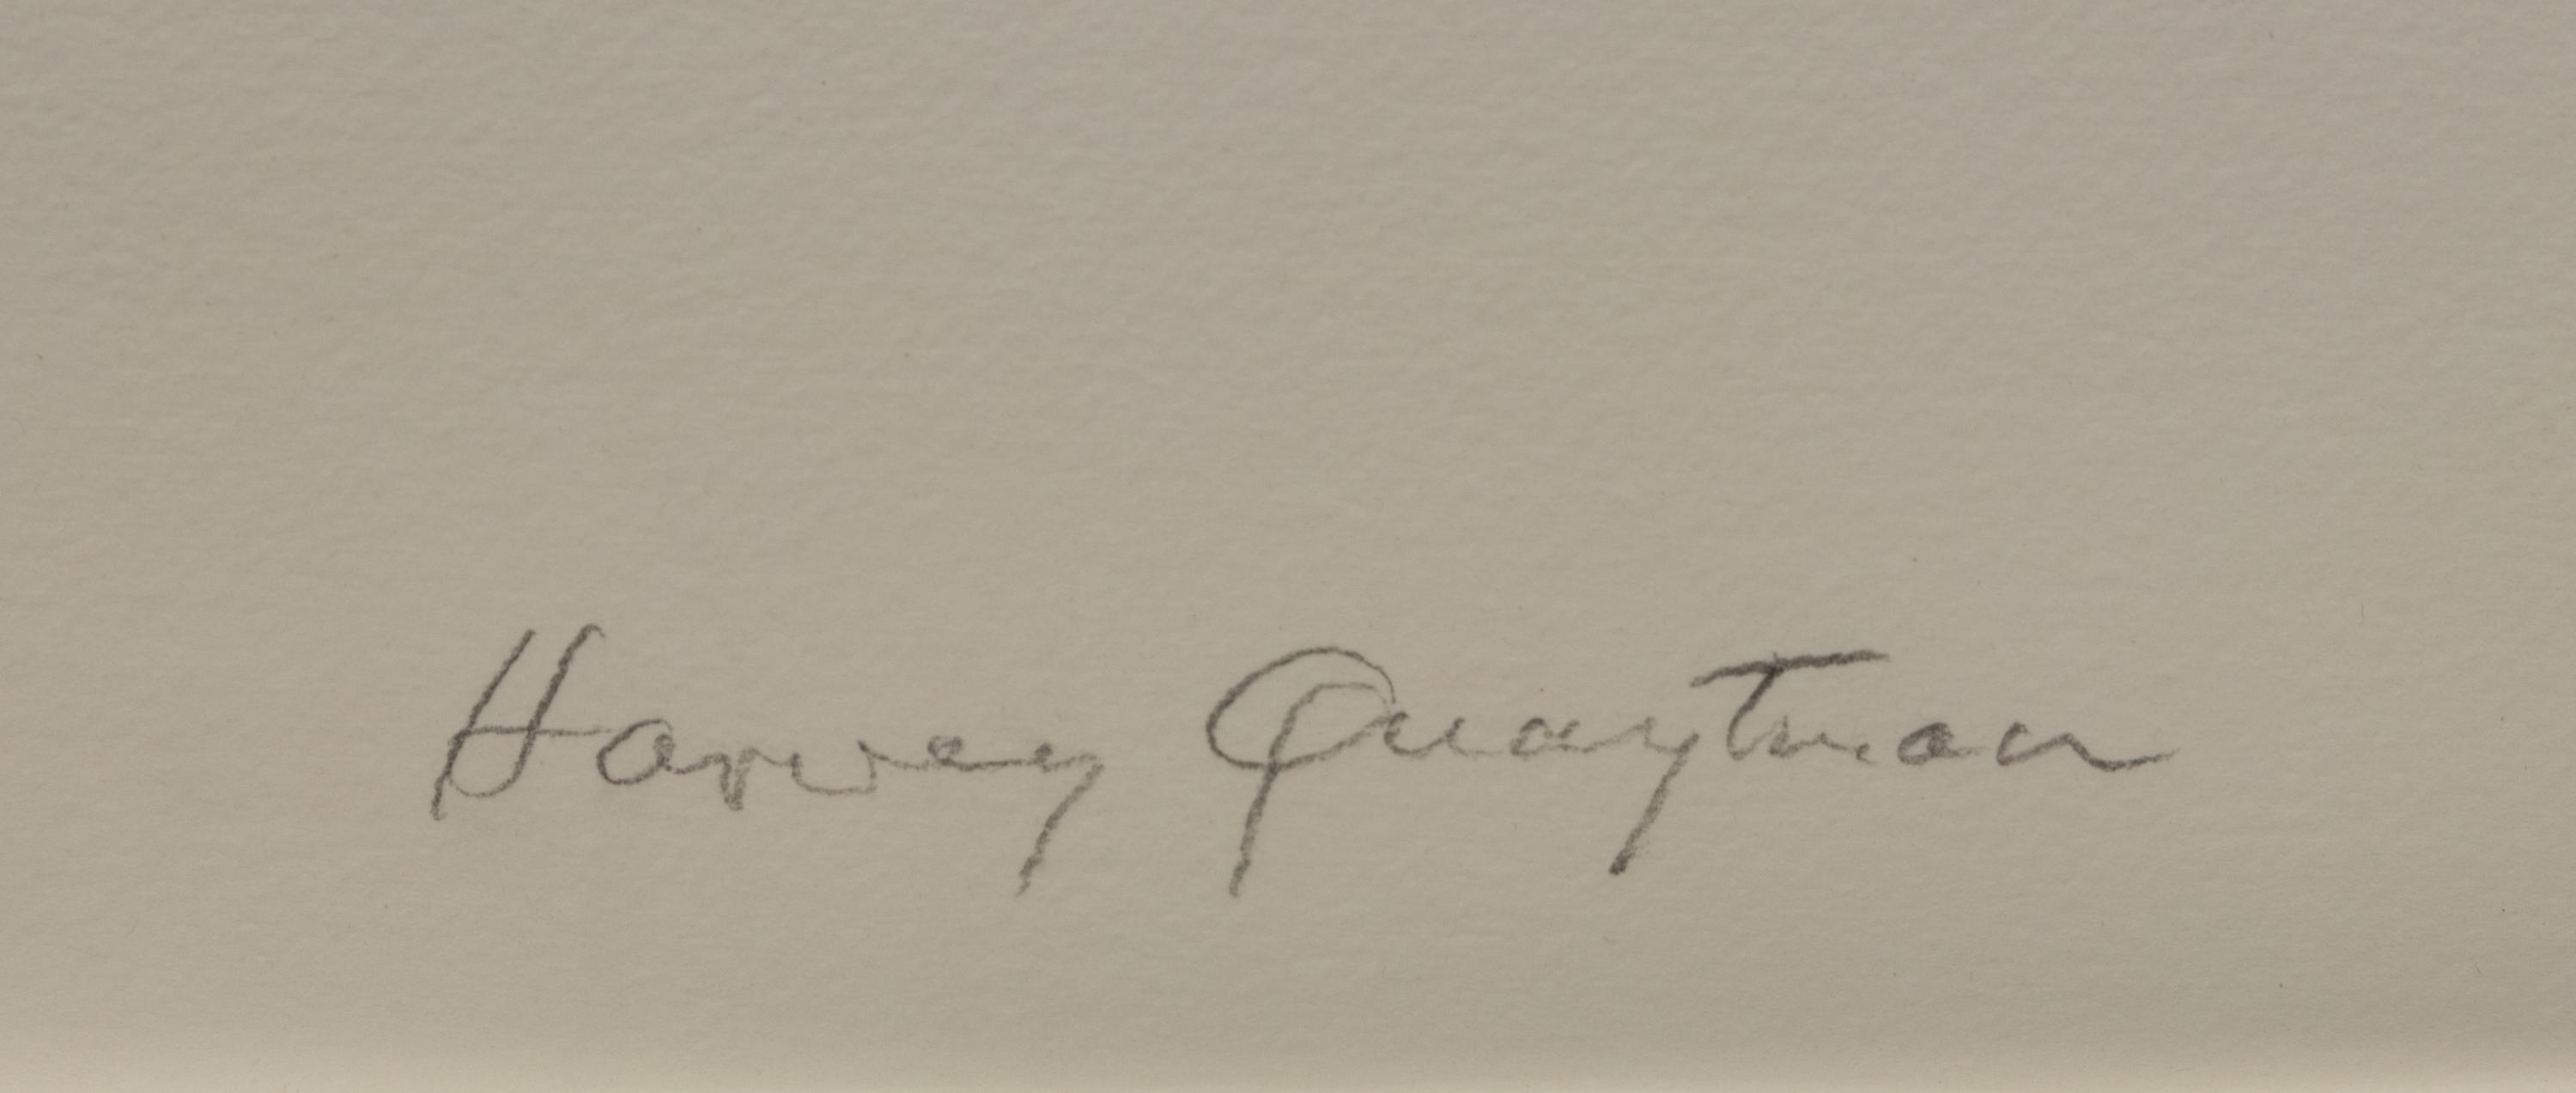 Harvey Quaytman